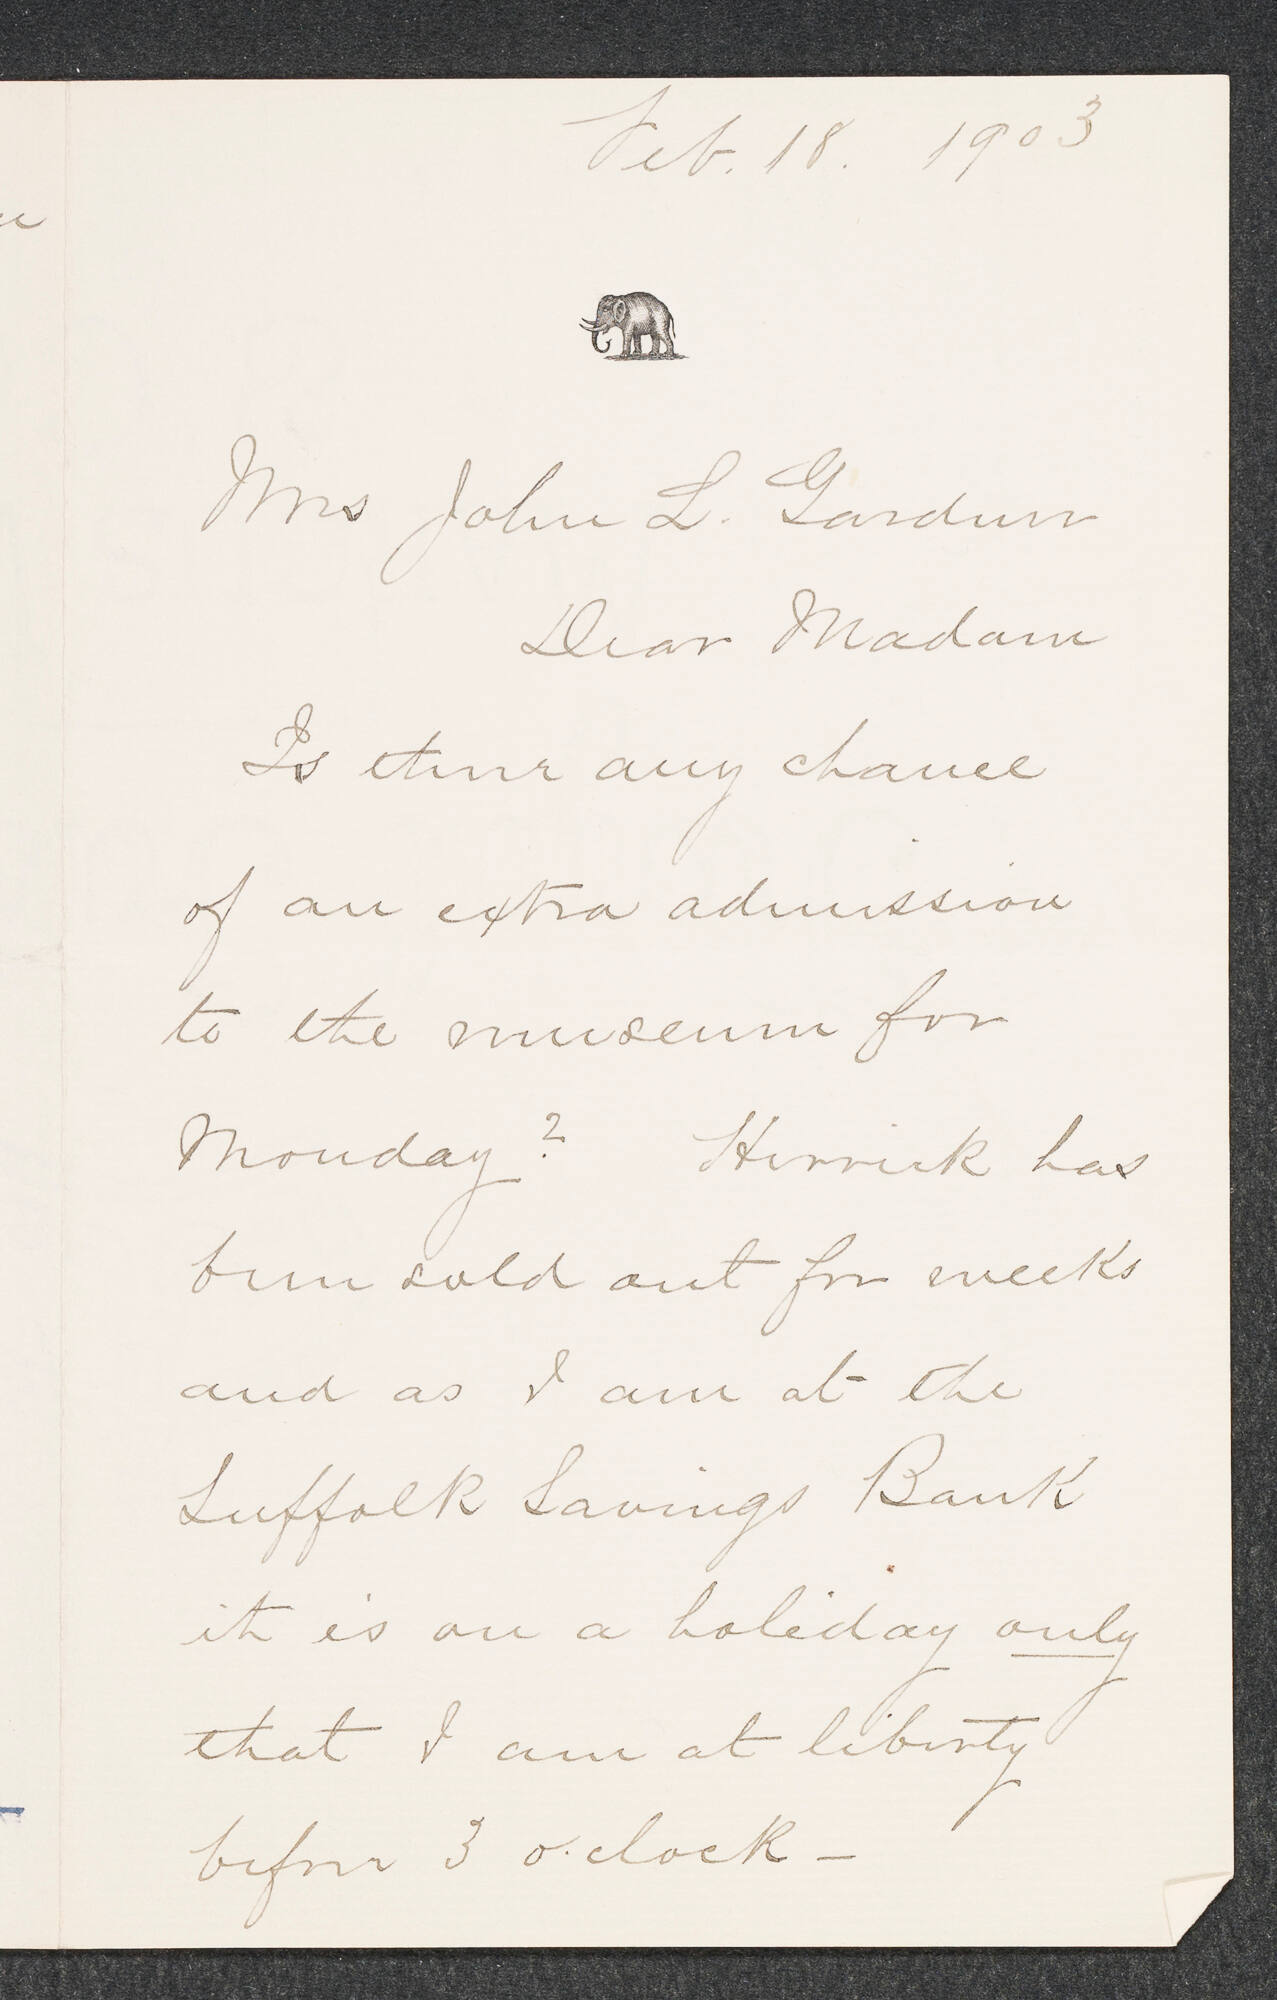 Feb. 18. 1903
Mrs John L. Gardner
Dear Madam
Is there any chance
of an extra admission
to the museum for
Monday? Herrick has
been sold out for weeks
and as I am at the
Suffolk Savings Bank
it is on a holiday only
that I am at liberty
before 3 o'clock –